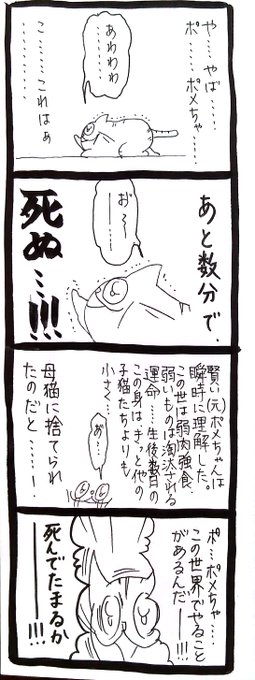 や…やば……
ポ……ポメちゃ……
こ………これはぁ
………
あわわわ
………
あと数分で、
お〜〜
………
死ぬ…!!!
賢い(元)ポメちゃんは
瞬時に理解した。
この世は弱肉強食、
弱いものは淘汰される
運命……生後数日の
この身は、きっと他の
子猫たちよりも
小さく…
お…
母猫に捨てられ
たのだと……!
ポ…ポメちゃ……
この世界でやること
があるんだ——!!
死んでたまるか
———!!!